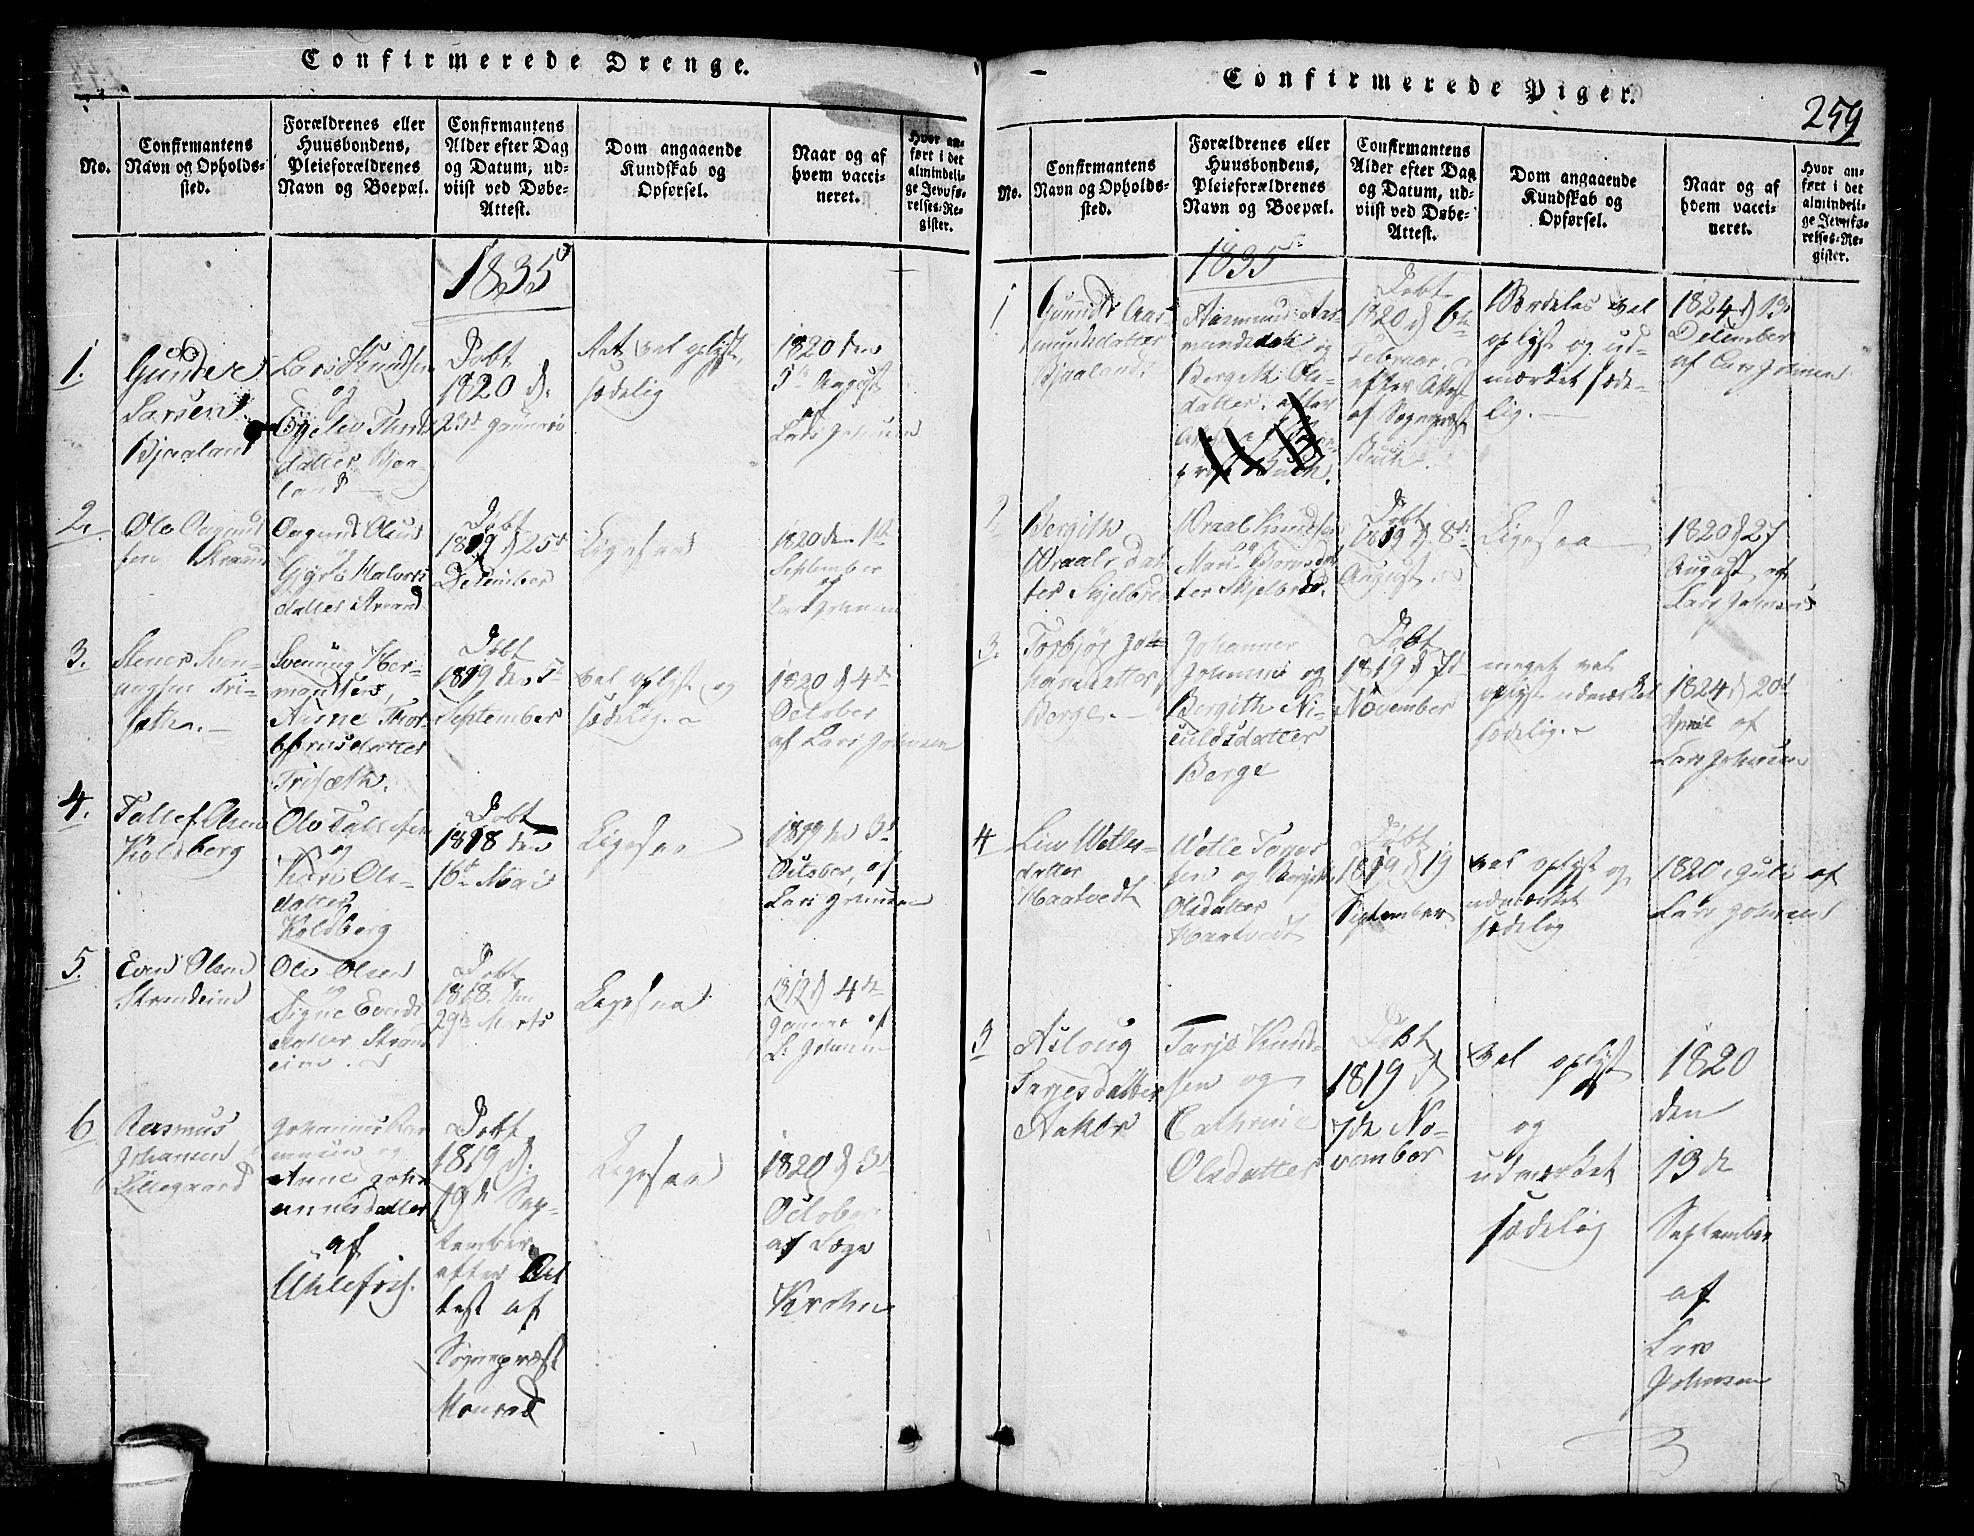 Confirmerede Drenge.
No.
Confirmantens
Navn og Opholds-
sted.
Forældrenes eller
Huusbondens,
Pleieforældrenes
Navn og Boepæl.
Confirmantens
Alder efter Dag
og Datum, ud-
viist ved Døbe-
Attest.
Dom angaaende
Kundskab og
Opførsel.
Naar og af
hvem vacci-
neret.
Hvor an-
ført i det
almindeli-
ge Jevnfø-
relses-Re-
gister.
1835
1.
Gunder
Larsen
Bjaaland
Lars Knudsen
og
datter Bjaa-
land
Døbt
1820 d.
23de Januar
Ret vel oplyst,
sædelig
1820 den
5te August
af
Lars Johnsen
2.
Olv Aagund
sen Strand
Aagund Olvs
og
Gjyro Halvors
datter Strand
Døbt
1819 d 25d
December
Ligesaa
1820 den 1te
September
af
Lars Johnsen
3.
Stener Sven-
ungsen Tri-
sæth.
Svenung Her-
mandsen,
Anne Thor-
bjørnsdatter
Trisæth.
Døbt
1819 den 5t
September
vel oplyst og
sædelig.
1820 d 4de
October
af Lars Johnsen
4.
Tallef Olsen
Koldberg
Olv Tallefsen
og
Kari Ols-
datter
Koldberg
Døbt
1818 den
16de Mai
Ligesaa
1819 den 3d
October, af
Lars Johnsen
5.
Even Olsen
Strandeim
Olv Olsen
og
Signe Evends
datter Strand
eim.
Døbt
1818. den
29de Marts
Ligesaa
d 4de
Januar af
L. Johnsen
6
Rasmus
Johansen
Lillegaard
Johannes Ras
mussen og
Anne Joha
nnesdatter
af
Uhlefos.
Døbt
1819 d.
19de Sep-
tember
efter At
test af
Sognepræst
Monrad
Ligesaa
1820 d 3
October
af Læge
Krohn
Confirmerede Piger.
259
No.
Confirmantens
Navn og Opholds-
sted.
Forældrenes eller
Huusbondens,
Pleieforældrenes
Navn og Boepæl.
Confirmantens
Alder efter Dag
og Datum, ud-
viist ved Døbe-
Attest.
Dom angaaende
Kundskab og
Opførsel.
Naar og af
hvem vacci-
neret.
Hvor an-
ført i det
almindeli-
ge Jevnfø-
relses-Re-
gister.
1835
1
Gunild Aas-
mundsdatter
Bjaaland
Aasmund Aas-
mundsen og
Bergith Ols-
datter. efter
Døbt
1820 d 6te
Februar,
efter Attest
af Sognepræst
Buch.
Særdeles vel
oplyst og ud-
mærket sæde-
lig.
1824 d 13
December
af Lars Johnsen
2
Bergith
Wraals dat
ter Skjelbred
Wraal Knudsen
og
ter Skjelbred.
Døbt
1819 d. 8de
August.
Ligesaa
1820 d 27
August af
Lars Johnsen
3.
Torbjør Jo-
hannesdatter
Berge.
Johannes
Johannes og
Bergith Ni-
culdsdatter
Berge
Døbt
1819 d 7d
November
meget vel
oplyst udmærket
sædelig.
1824 d 20d
April af
Lars Johnsen
4
Liv Wetles-
datter
Haatvedt
Wetle Torjus
sen og Bergith
Olsdatter
Haatvedt
Døbt
1819 d 19
September
vel oplyst og
udmærket
sædelig
1820, Juli af
Lars Johnsen
5
Asloug
Tarjesdatter
Aaker
Tarje Knud-
sen og
Cathrine
Olsdatter
Døbt
1819 d
7de No-
vember
vel oplyst
og
udmærket
sædelig
1820
den
13de
September
af
Lars
Johnsen